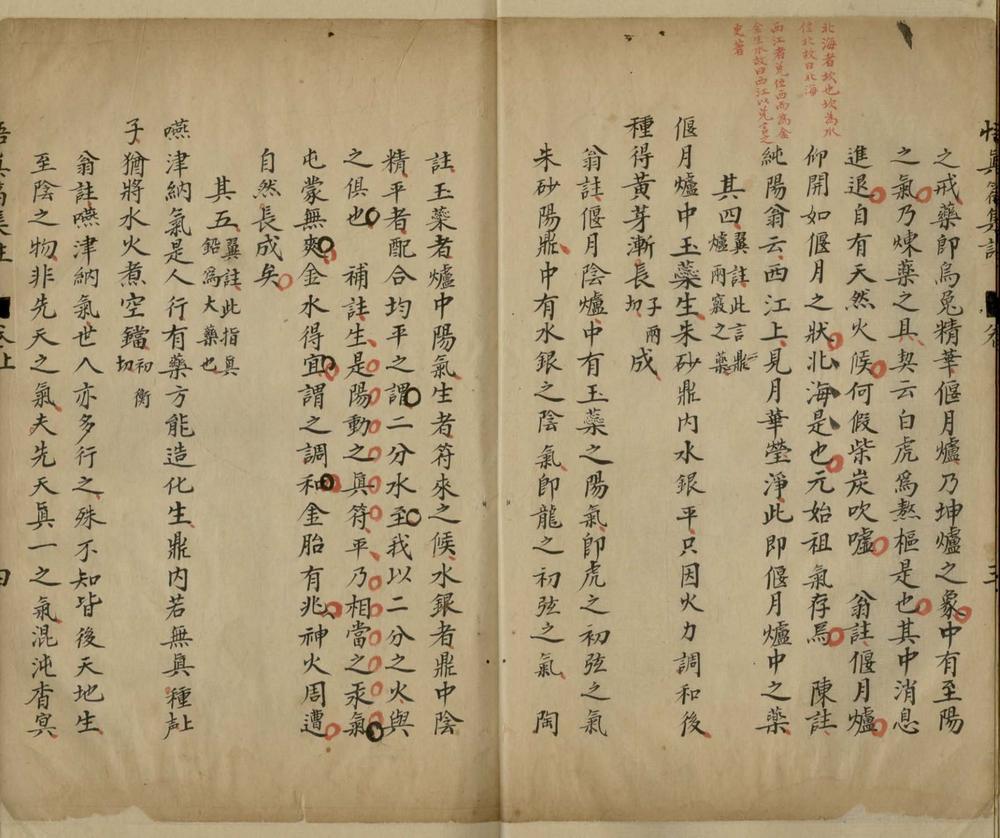 北海者坎也坎為水
位北故曰北海
西江者兌位西而為金
金生水故曰西江以兌言之
更著
之戒藥即烏兔精華偃月爐乃坤爐之象中有至陽
之氣乃煉藥之具契云白虎爲熬樞是也其中消息
進退自有天然火候何假柴炭吹噓 翁註偃月爐
仰開如偃月之狀北海是也元始祖氣存焉 陳註
純陽翁云西江上見月華瑩淨此即偃月爐中之藥
其四翼註此言鼎爐兩竅之藥
偃月爐中玉蘂生朱砂鼎內水銀平只因火力調和後
種得黃芽漸長子兩切成
翁註偃月陰爐中有玉蘂之陽氣即虎之初弦之氣
朱砂陽鼎中有水銀之陰氣即龍之初弦之氣 陶
註玉蘂者爐中陽氣生者符來之候水銀者鼎中陰
精平者配合均平之謂二分水至我以二分之火與
之俱也 補註生是陽動之真符平乃相當之汞氣
屯蒙無爽金水得宜謂之調和金胎有兆神火周遭
自然長成矣
其五翼註此指真鉛爲大藥也
嚥津納氣是人行有藥方能造化生鼎內若無眞種上聲
子猶將水火煮空鐺初衡切
翁註嚥津納氣世人亦多行之殊不知皆後天地生
至陰之物非先天之氣夫先天眞一之氣混沌杳冥